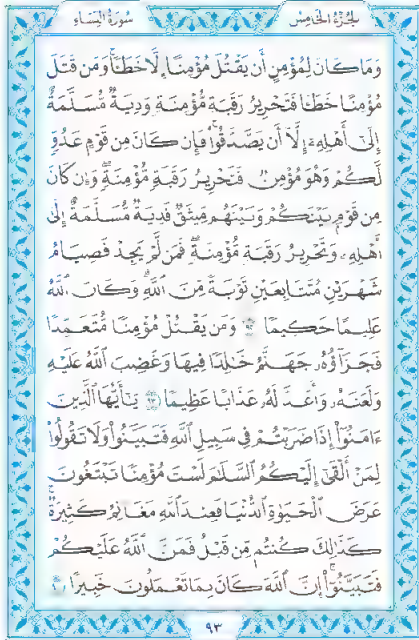 الجزء الخامس
سورة النساء
وَمَا كَانَ لِمُؤْمِنٍ أَن يَقْتُلَ مُؤْمِنًا إِلَّا خَطَـًٔا وَمَن قَتَلَ
مُؤْمِنًا خَطَـًٔا فَتَحْرِيرُ رَقَبَةٍ مُّؤْمِنَةٍ وَدِيَةٌ مُّسَلَّمَةٌ
إِلَىٰٓ أَهْلِهِۦٓ إِلَّآ أَن يَصَّدَّقُوا۟ فَإِن كَانَ مِن قَوْمٍ عَدُوٍّ
لَّكُمْ وَهُوَ مُؤْمِنٌ فَتَحْرِيرُ رَقَبَةٍ مُّؤْمِنَةٍ وَإِن كَانَ
مِن قَوْمٍۭ بَيْنَكُمْ وَبَيْنَهُم مِّيثَـٰقٌ فَدِيَةٌ مُّسَلَّمَةٌ إِلَىٰٓ
أَهْلِهِۦ وَتَحْرِيرُ رَقَبَةٍ مُّؤْمِنَةٍ فَمَن لَّمْ يَجِدْ فَصِيَامُ
شَهْرَيْنِ مُتَتَابِعَيْنِ تَوْبَةً مِّنَ ٱللَّهِ وَكَانَ ٱللَّهُ
عَلِيمًا حَكِيمًا ٩٢ وَمَن يَقْتُلْ مُؤْمِنًا مُّتَعَمِّدًا
فَجَزَآؤُهُۥ جَهَنَّمُ خَـٰلِدًا فِيهَا وَغَضِبَ ٱللَّهُ عَلَيْهِ
وَلَعَنَهُۥ وَأَعَدَّ لَهُۥ عَذَابًا عَظِيمًا ٩٣ يَـٰٓأَيُّهَا ٱلَّذِينَ
ءَامَنُوٓا۟ إِذَا ضَرَبْتُمْ فِى سَبِيلِ ٱللَّهِ فَتَبَيَّنُوا۟ وَلَا تَقُولُوا۟
لِمَنْ أَلْقَىٰٓ إِلَيْكُمُ ٱلسَّلَـٰمَ لَسْتَ مُؤْمِنًا تَبْتَغُونَ
عَرَضَ ٱلْحَيَوٰةِ ٱلدُّنْيَا فَعِندَ ٱللَّهِ مَغَانِمُ كَثِيرَةٌ
كَذَٰلِكَ كُنتُم مِّن قَبْلُ فَمَنَّ ٱللَّهُ عَلَيْكُمْ
فَتَبَيَّنُوٓا۟ إِنَّ ٱللَّهَ كَانَ بِمَا تَعْمَلُونَ خَبِيرًا
٩٣